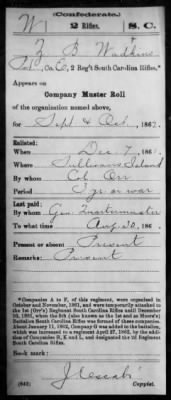 (Confederate.)
W 2 Rifles. S. C.
Z B Watkins
Pvt, Co. C, 2 Reg't South Carolina Rifles.*
Appears on
Company Muster Roll
of the organization named above,
for Sept & Oct, 1862.
Enlisted:
When Dec 7, 1861.
Where Sullivans Island
By whom Col Orr
Period 3 yrs or war
Last paid:
By whom Gen Quartermaster
To what time Aug 30, 186
Present or absent Present
Remarks: Present
*Companies A to F, of this regiment, were organized in
October and November, 1861, and were temporarily attached to
the 1st (Orr's) Regiment South Carolina Rifles until December
Battalion South Carolina Rifles was formed of these companies.
About January 11, 1862, Company G was added to the battalion,
which was increased to a regiment April 27, 1862, by the addition
of Companies H, K and L, and designated the 2d Regiment
South Carolina Rifles.
Book mark:
(642)
Copyist.